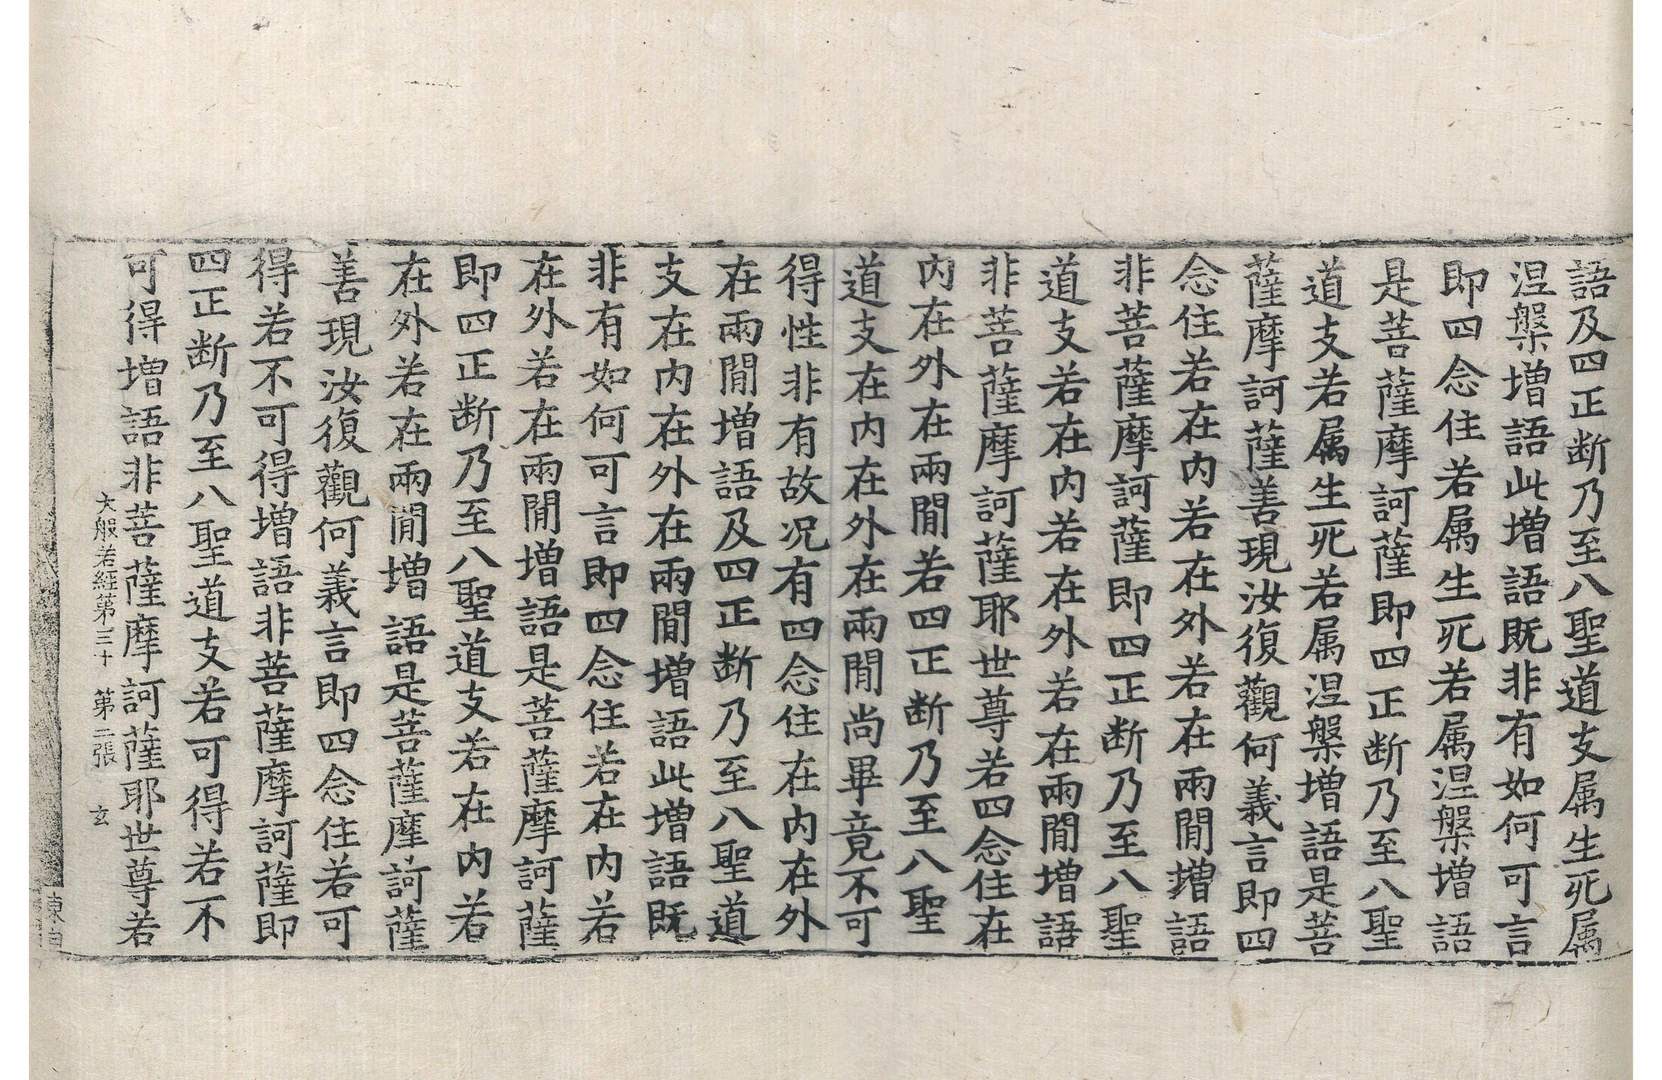 語及四正断乃至八聖道支属生死属
涅槃增語此增語既非有如何可言
即四念住若属生死若属涅槃增語
是菩薩摩訶薩即四正断乃至八聖
道支若属生死若属涅槃增語是菩
薩摩訶薩善現汝復觀何義言即四
念住若在内若在外若在兩閒增語
非菩薩摩訶薩即四正断乃至八聖
道支若在内若在外若在兩閒增語
非菩薩摩訶薩耶世尊若四念住在
内在外在兩閒若四正断乃至八聖
道支在内在外在兩閒尚畢竟不可
得性非有故况有四念住在内在外
在兩閒增語及四正断乃至八聖道
支在内在外在兩閒增語此增語既
非有如何可言即四念住若在内若
在外若在兩閒增語是菩薩摩訶薩
即四正断乃至八聖道支若在内若
在外若在兩閒增語是菩薩摩訶薩
善現汝復觀何義言即四念住若可
得若不可得增語非菩薩摩訶薩即
四正断乃至八聖道支若可得若不
可得增語非菩薩摩訶薩耶世尊若
大般若経第三十 第二張 玄